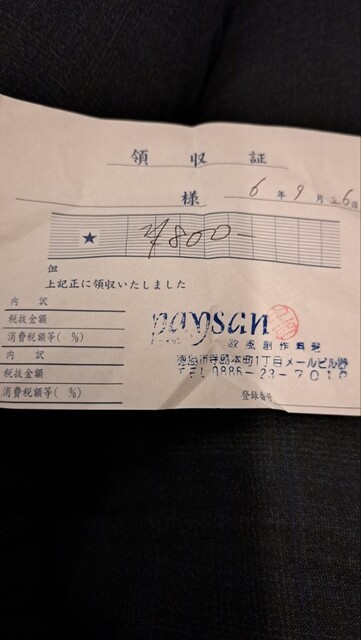 領収証
様 6年9月26日
★ ¥800-
但
上記正に領収いたしました
内訳
税抜金額
消費税額等( %)
内訳
税抜金額
消費税額等( %)
paysan
欧風創作
徳島市寺島本町1丁目メールビル
TEL 0886-23-7018
登録番号